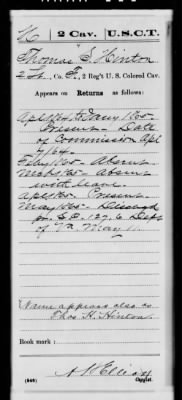 H | 2 Cav. | U.S.C.T.
Thomas S. Hinton
2 Lt., Co. F, 2 Reg't U. S. Colored Cav.
Appears on Returns as follows:
Apl/64 to Jany 1865
Present - Date
of Commission Apl
7/64.
Feby 1865 - Absent
Mch 1865 - Absent
with leave
Apl 1865 - Present
May 1865 - Discharged
pr. S.O. 127, 6 Dept
of Va May 11
Name appears also as
Thos. H. Hinton
Book mark:
(546)
Copyist.